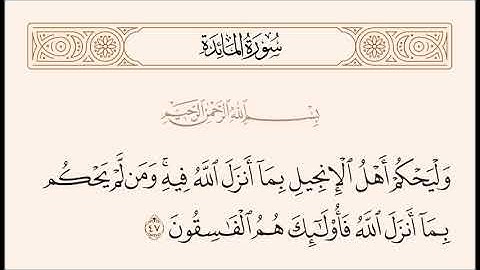 سُورَةُ المَائِدَةِ
بِسْمِ اللَّهِ الرَّحْمَٰنِ الرَّحِيمِ
وَلْيَحْكُمْ أَهْلُ الْإِنجِيلِ بِمَا أَنزَلَ اللَّهُ فِيهِ ۚ وَمَن لَّمْ يَحْكُم
بِمَا أَنزَلَ اللَّهُ فَأُولَٰئِكَ هُمُ الْفَاسِقُونَ ٤٧